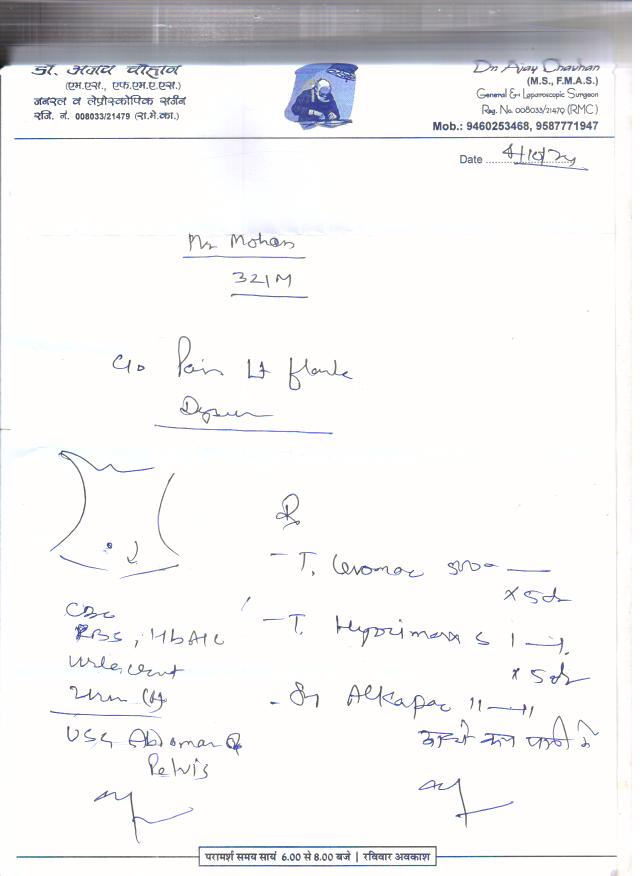 डॉ. अजय चौहान
(एम.एस., एफ.एम.ए.एस.)
जनरल व लेप्रोस्कोपिक सर्जन
रजि. नं. 008033/21479 (रा.मे.का.)
Dr. Ajay Chauhan
(M.S., F.M.A.S.)
General & Laparoscopic Surgeon
Reg. No. 008033/21479 (RMC)
Mob.: 9460253468, 9587771947
Date
Mr Mohan
32/M
C/o Pain Lt flank
Dysuria
Rx
- T. Levomac 500
x 5d
CBC
RBS, HbA1c
- T. Hyocimax S 1 — 1
x 5d
Urine
- Sy Alkapac 11 — 11
USG Abdomen &
Pelvis
परामर्श समय सायं 6.00 से 8.00 बजे | रविवार अवकाश